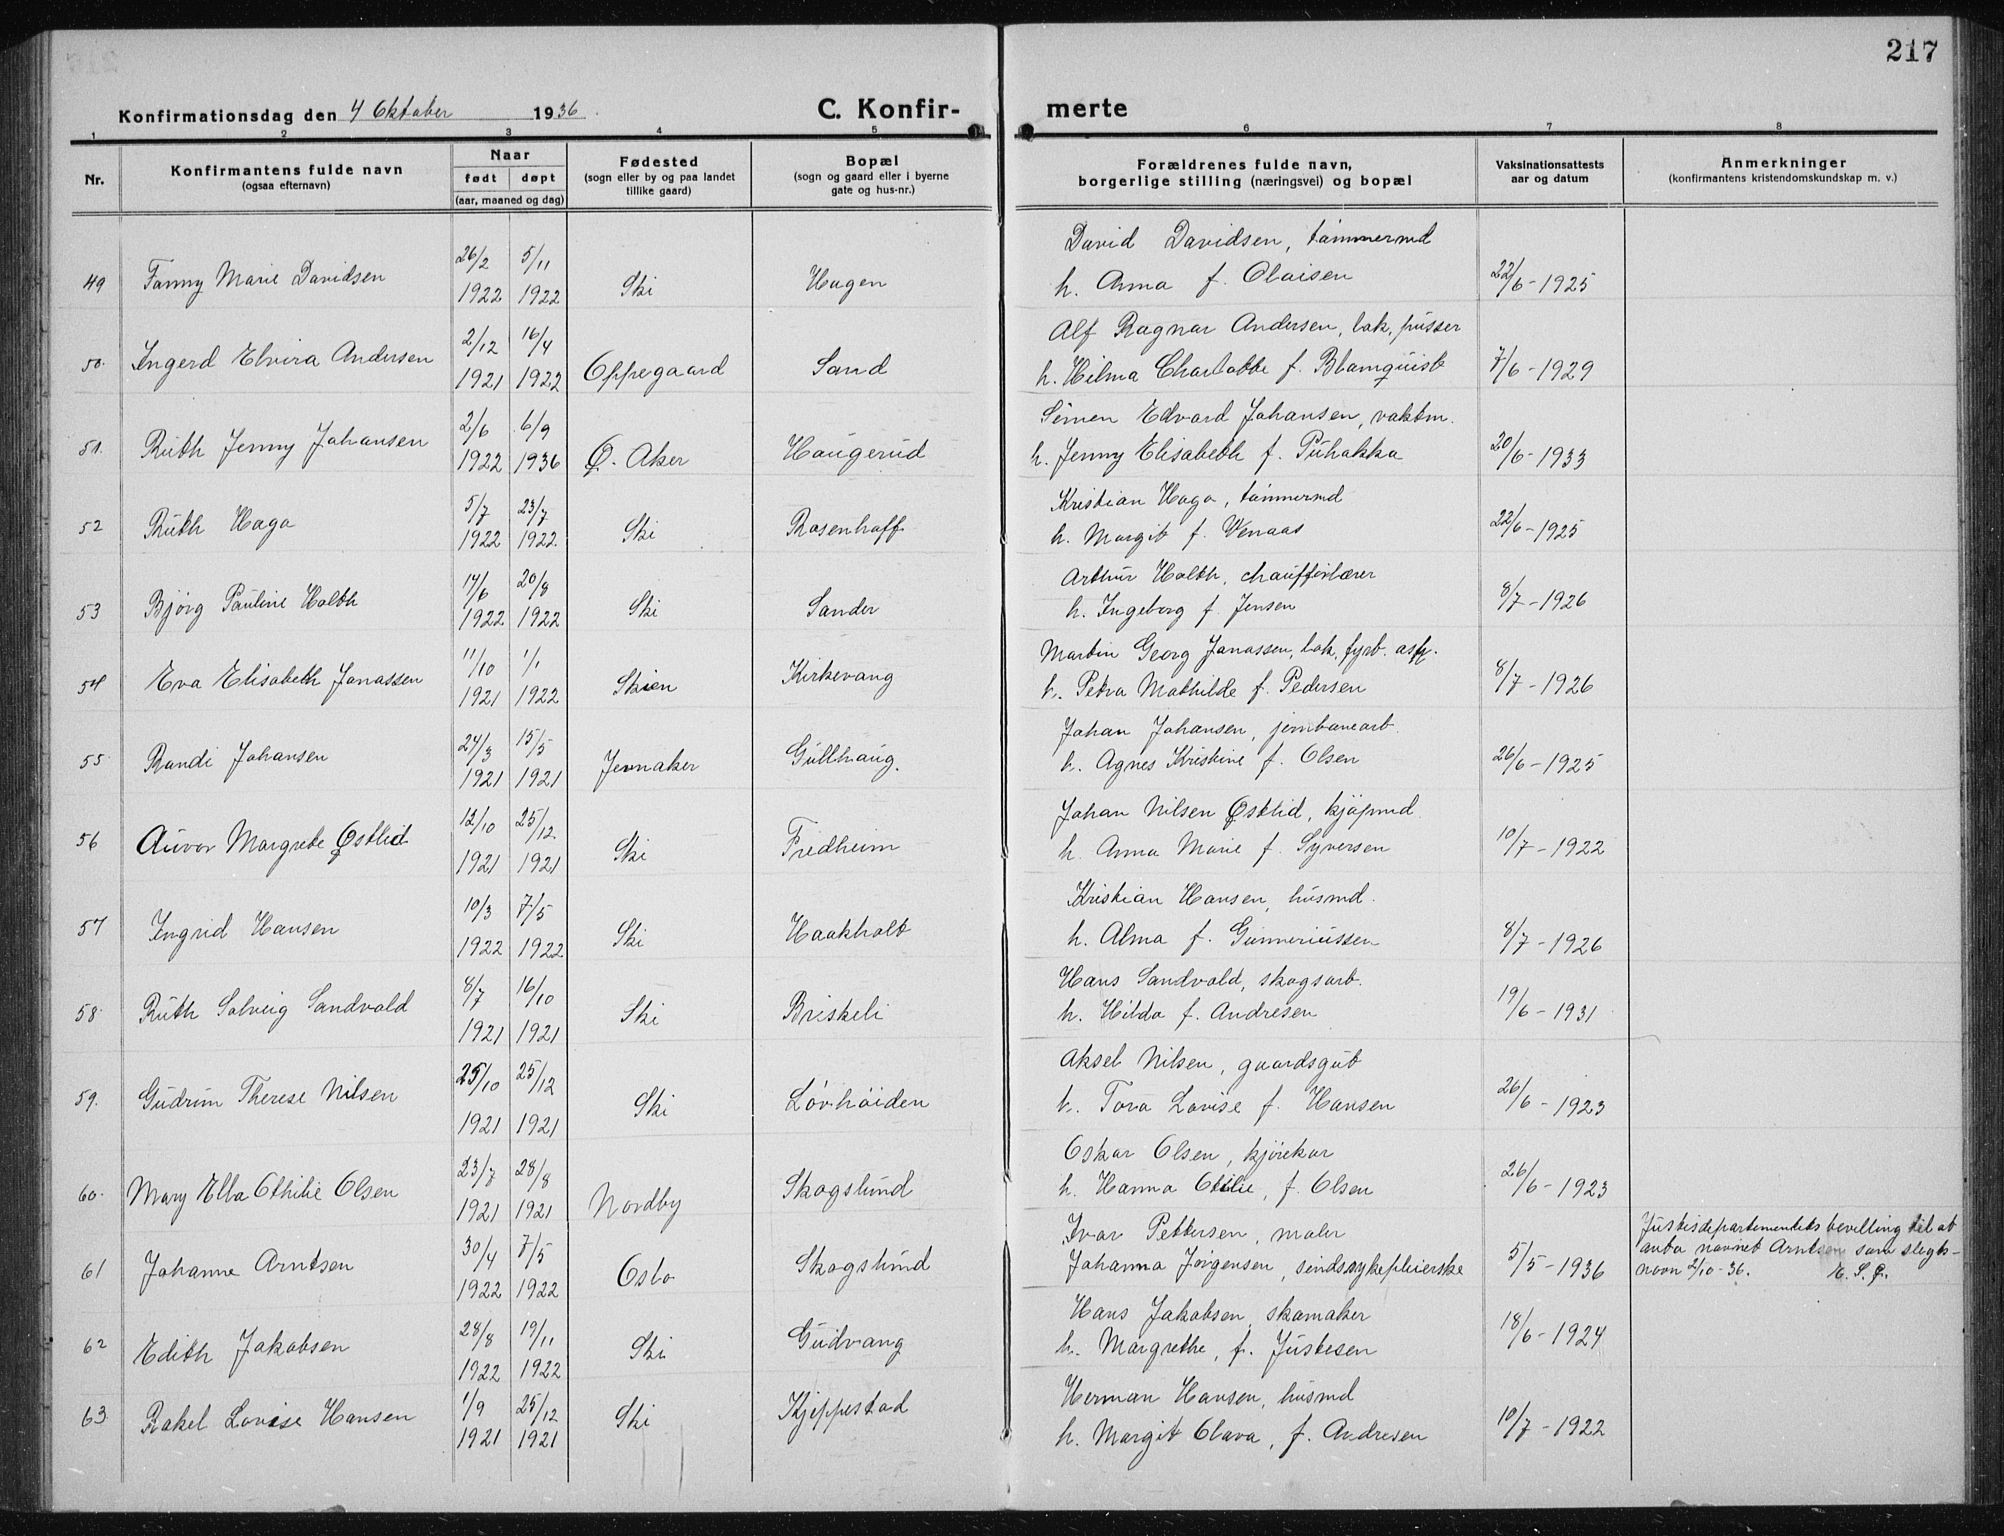 217
Konfirmationsdag den 4 Oktober 1936. C. Konfirmerte
1 2 3 4 5 6 7 8
Nr. Konfirmantens fulde navn (ogsaa efternavn) Naar født døpt (aar, maaned og dag) Fødested (sogn eller by og paa landet tillike gaard) Bopæl (sogn og gaard eller i byerne gate og hus-nr.) Forældrenes fulde navn, borgerlige stilling (næringsvei) og bopæl Vaksinationsattests aar og datum Anmerkninger (konfirmantens kristendomskundskap m. v.)
26/2 5/11 David Davidsen, tømmermd
49 Fanny Marie Davidsen 1922 1922 Ski Hagen h. Anna f. Olaisen 22/6-1925
2/12 16/4 Alf Ragnar Andersen, lok. pusser
50. Ingerd Elvira Andersen 1921 1922 Oppegaard Sand h. Hilma Charlotte f. Blomquist 7/6-1929
2/6 6/9 Simen Edvard Johansen, vaktm.
51. Ruth Jenny Johansen 1922 1936 Ø. Aker Haugerud h. Jenny Elisabeth f. Puhakka 20/6-1933
5/7 23/7 Kristian Haga, tømmermd
52 Ruth Haga 1922 1922. Ski Rosenhoff h. Margit f. Venaas 22/6-1925
14/6 20/8 Arthur Holth, chaufførlærer
53 Bjørg Pauline Holth 1922 1922 Ski Sander h. Ingeborg f. Jensen 8/7-1926
11/10 1/1 Martin Georg Jonassen, lok. fyrb. asp.
54 Eva Elisabeth Jonassen 1921 1922 Skien Kirkevang h. Petra Mathilde f. Pedersen 8/7-1926
24/3 15/5 Johan Johansen, jernbanearb.
55 Randi Johansen 1921 1921 Jevnaker Gullhaug. h. Agnes Kristine f. Olsen 26/6-1925
12/10 25/12. Johan Nilsen Østlid, kjøpmd.
56 Auvor Margrete Østlid 1921 1921 Ski Fredheim h. Anna Marie f. Syversen 10/7-1922
10/3 7/5 Kristian Hansen, husmd.
57 Ingrid Hansen 1922 1922 Ski Haakholt h. Alma f. Gunneriussen 8/7-1926
8/7 16/10 Hans Sandvold, skogsarb.
58. Ruth Solveig Sandvold 1921 1921 Ski Briskeli h. Hilda f. Andresen 19/6-1931
25/10 25/12 Aksel Nilsen, gaardsgut
59. Gudrun Therese Nilsen 1921 1921 Ski Løvhøiden h. Tora Lovise f. Hansen 26/6-1923
23/7 28/8 Oskar Olsen, kjørekar
60. Mary Ella Othilie Olsen 1921 1921 Nordby Skogslund h. Hanna Otilie, f. Olsen 26/6-1923
30/4 7/5 Ivar Pettersen, maler Justisdepartementets bevilling til at
61 Johanne Arntsen 1922 1922 Oslo Skogslund Johanna Jørgensen, sindssykepleierske 5/5-1936 anta navnet Arntsen som slegts-
navn 2/10-36. E. S. Ø.
28/8 19/11 Hans Jakobsen, skomaker
62 Edith Jakobsen 1922 1922 Ski Gudvang h. Margrethe, f. Justesen 18/6-1924
1/9 25/12 Herman Hansen, husmd
63 Rakel Lovise Hansen 1921 1921 Ski Kjeppestad h. Margit Olava, f. Andresen 10/7-1922